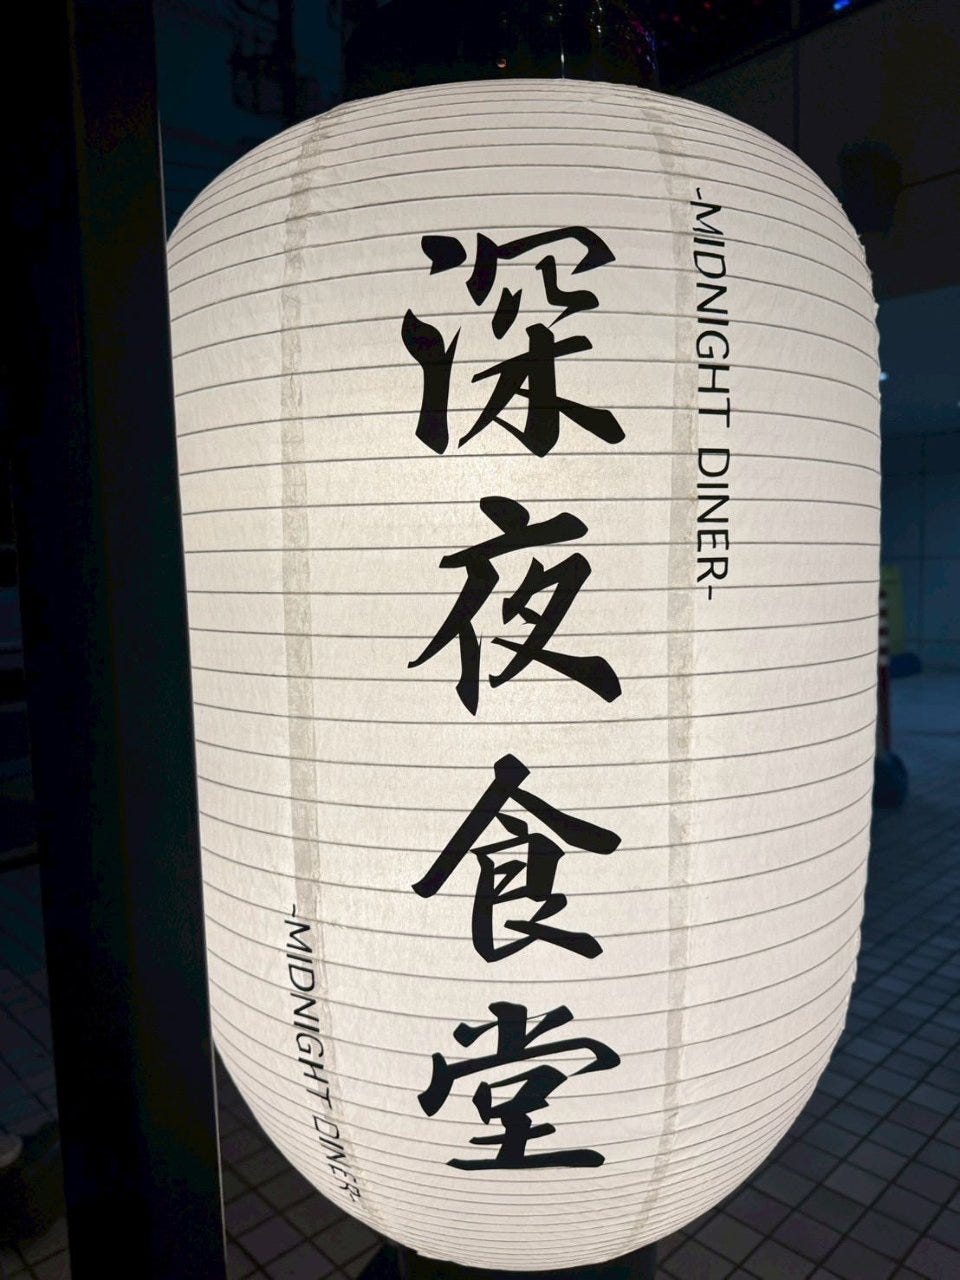 -MIDNIGHT DINER-
深夜食堂
-MIDNIGHT DINER-